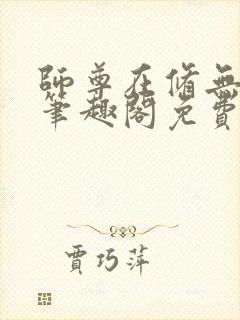 師尊在脩無
筆趣閣免費
賈巧萍